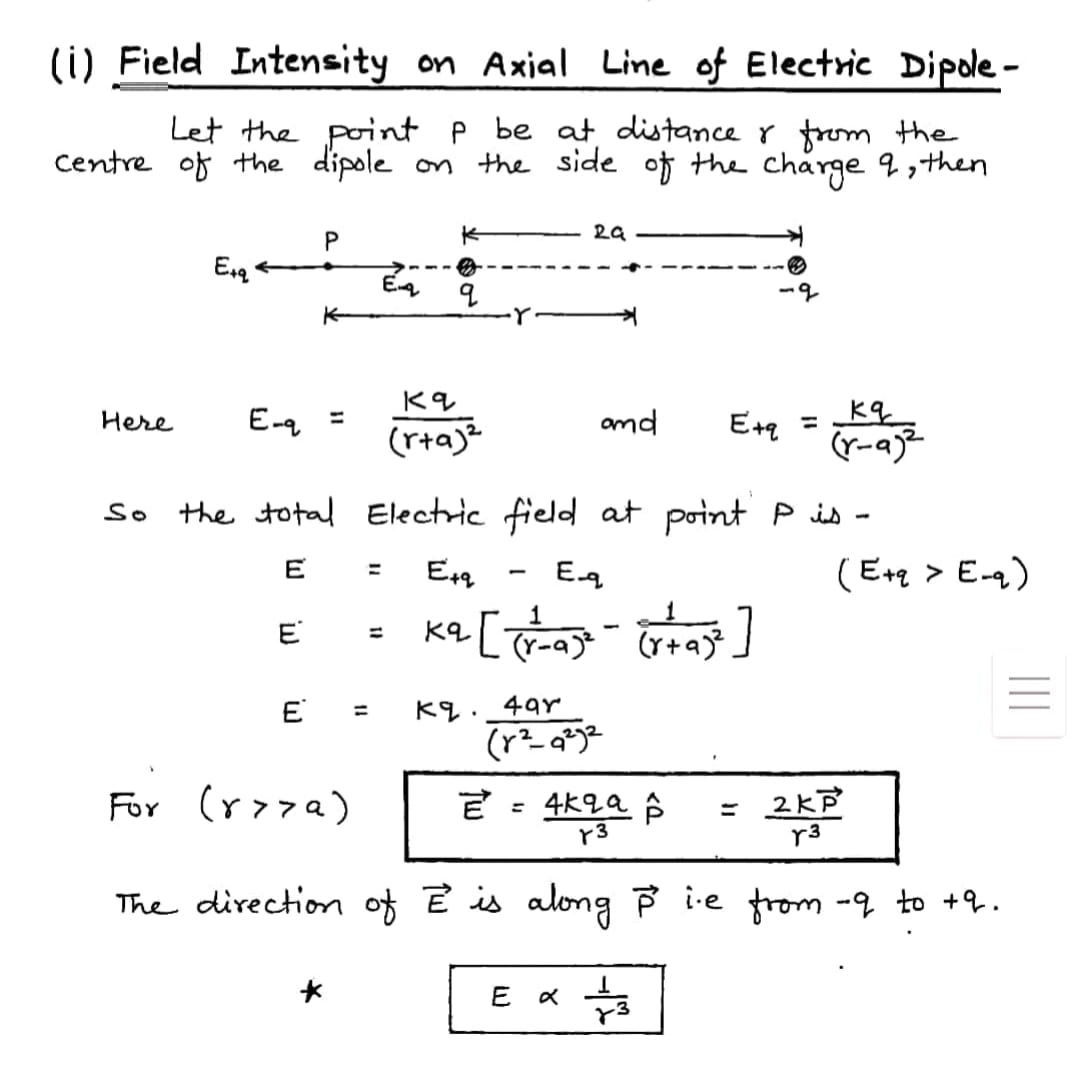 (i) Field Intensity on Axial Line of Electric Dipole -
Let the point P be at distance r from the
centre of the dipole on the side of the charge q, then
2a
P
E+q
E-q
q
-q
r
Here E-q = Kq/(r+a)² and E+q = Kq/(r-a)²
So the total Electric field at point P is -
E = E+q - E-q (E+q > E-q)
E = Kq [ 1/(r-a)² - 1/(r+a)² ]
E = Kq . 4ar/(r²-a²)²
For (r>>a) E⃗ = 4Kqa/r³ p̂ = 2KP⃗/r³
The direction of E⃗ is along P⃗ i.e from -q to +q.
* E ∝ 1/r³